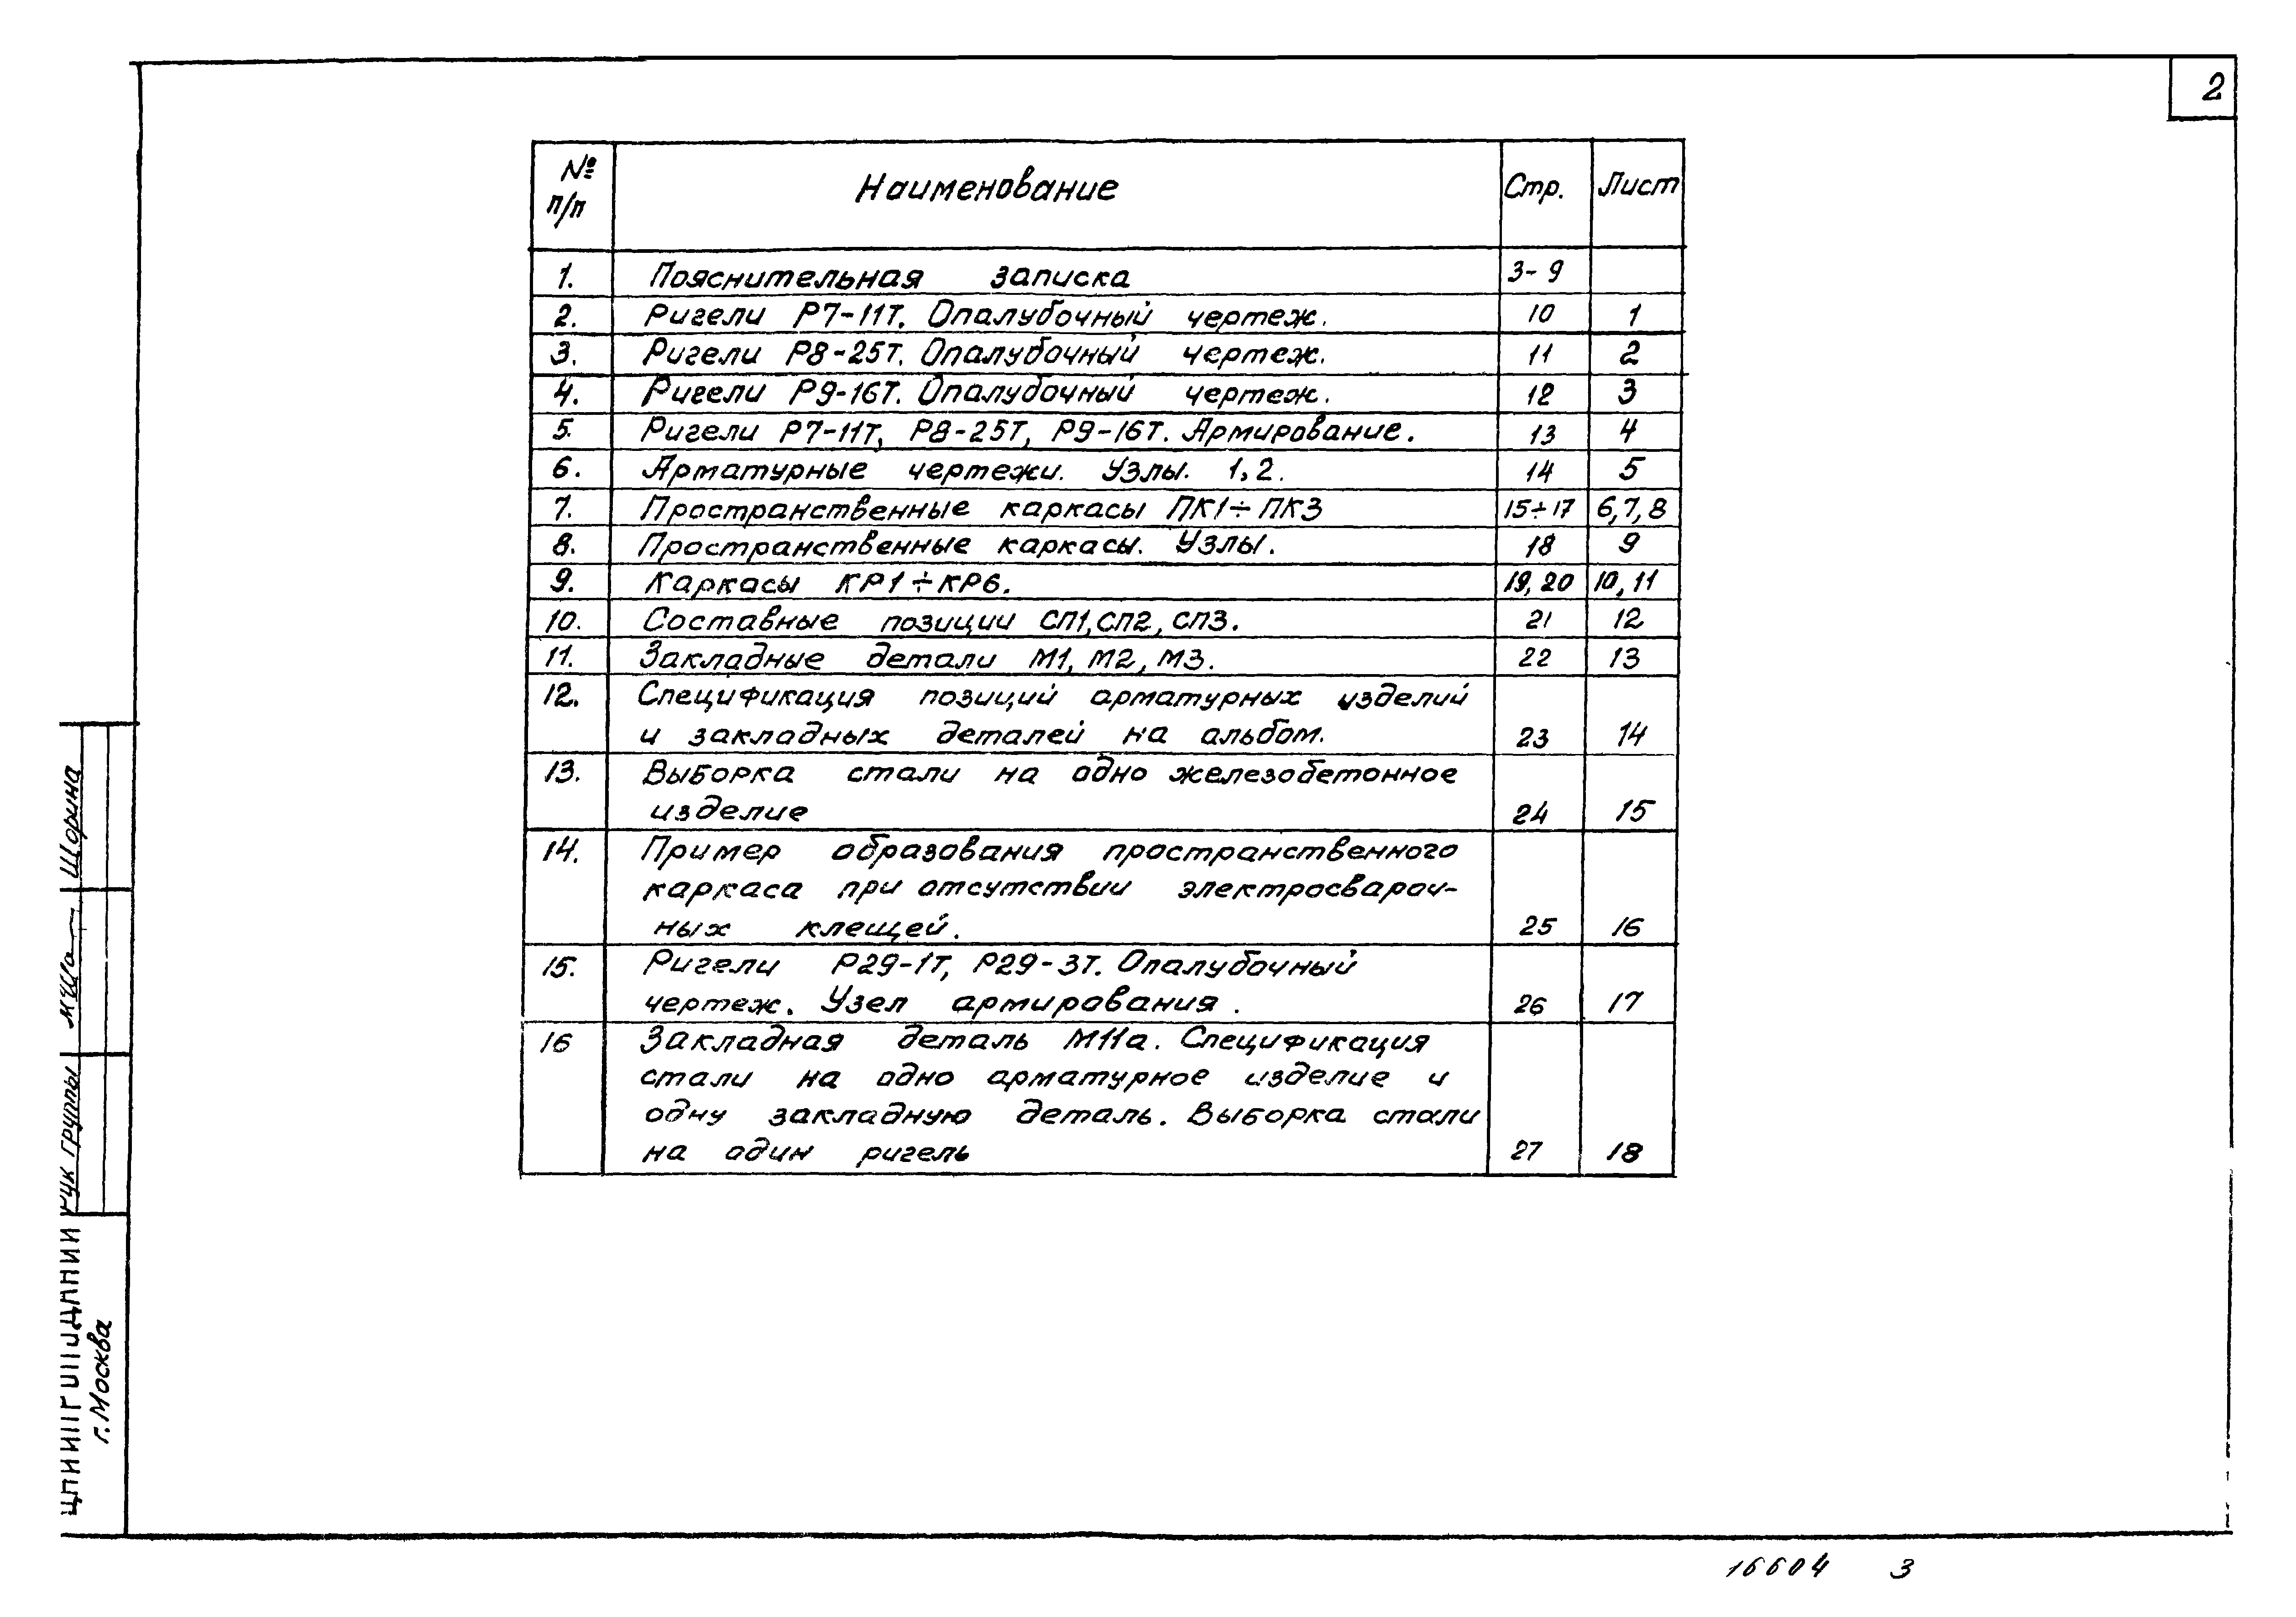 2
№ п/п Наименование Стр. Лист
1. Пояснительная записка 3-9
2. Ригели Р7-11т. Опалубочный чертеж. 10 1
3. Ригели Р8-25т. Опалубочный чертеж. 11 2
4. Ригели Р9-16т. Опалубочный чертеж. 12 3
5. Ригели Р7-11т, Р8-25т, Р9-16т. Армирование. 13 4
6. Арматурные чертежи. Узлы. 1,2. 14 5
7. Пространственные каркасы ПК1÷ПК3 15÷17 6,7,8
8. Пространственные каркасы. Узлы. 18 9
9. Каркасы КР1÷КР6. 19, 20 10, 11
10. Составные позиции СП1, СП2, СП3. 21 12
11. Закладные детали М1, М2, М3. 22 13
12. Спецификация позиций арматурных изделий
и закладных деталей на альбом. 23 14
13. Выборка стали на одно железобетонное
изделие 24 15
14. Пример образования пространственного
каркаса при отсутствии электросвароч-
ных клещей. 25 16
15. Ригели Р29-1т, Р29-3т. Опалубочный
чертеж. Узел армирования. 26 17
16 Закладная деталь М11а. Спецификация
стали на одно арматурное изделие и
одну закладную деталь. Выборка стали
на один ригель 27 18
Шорина
Рук группы
г. Москва
16604 3